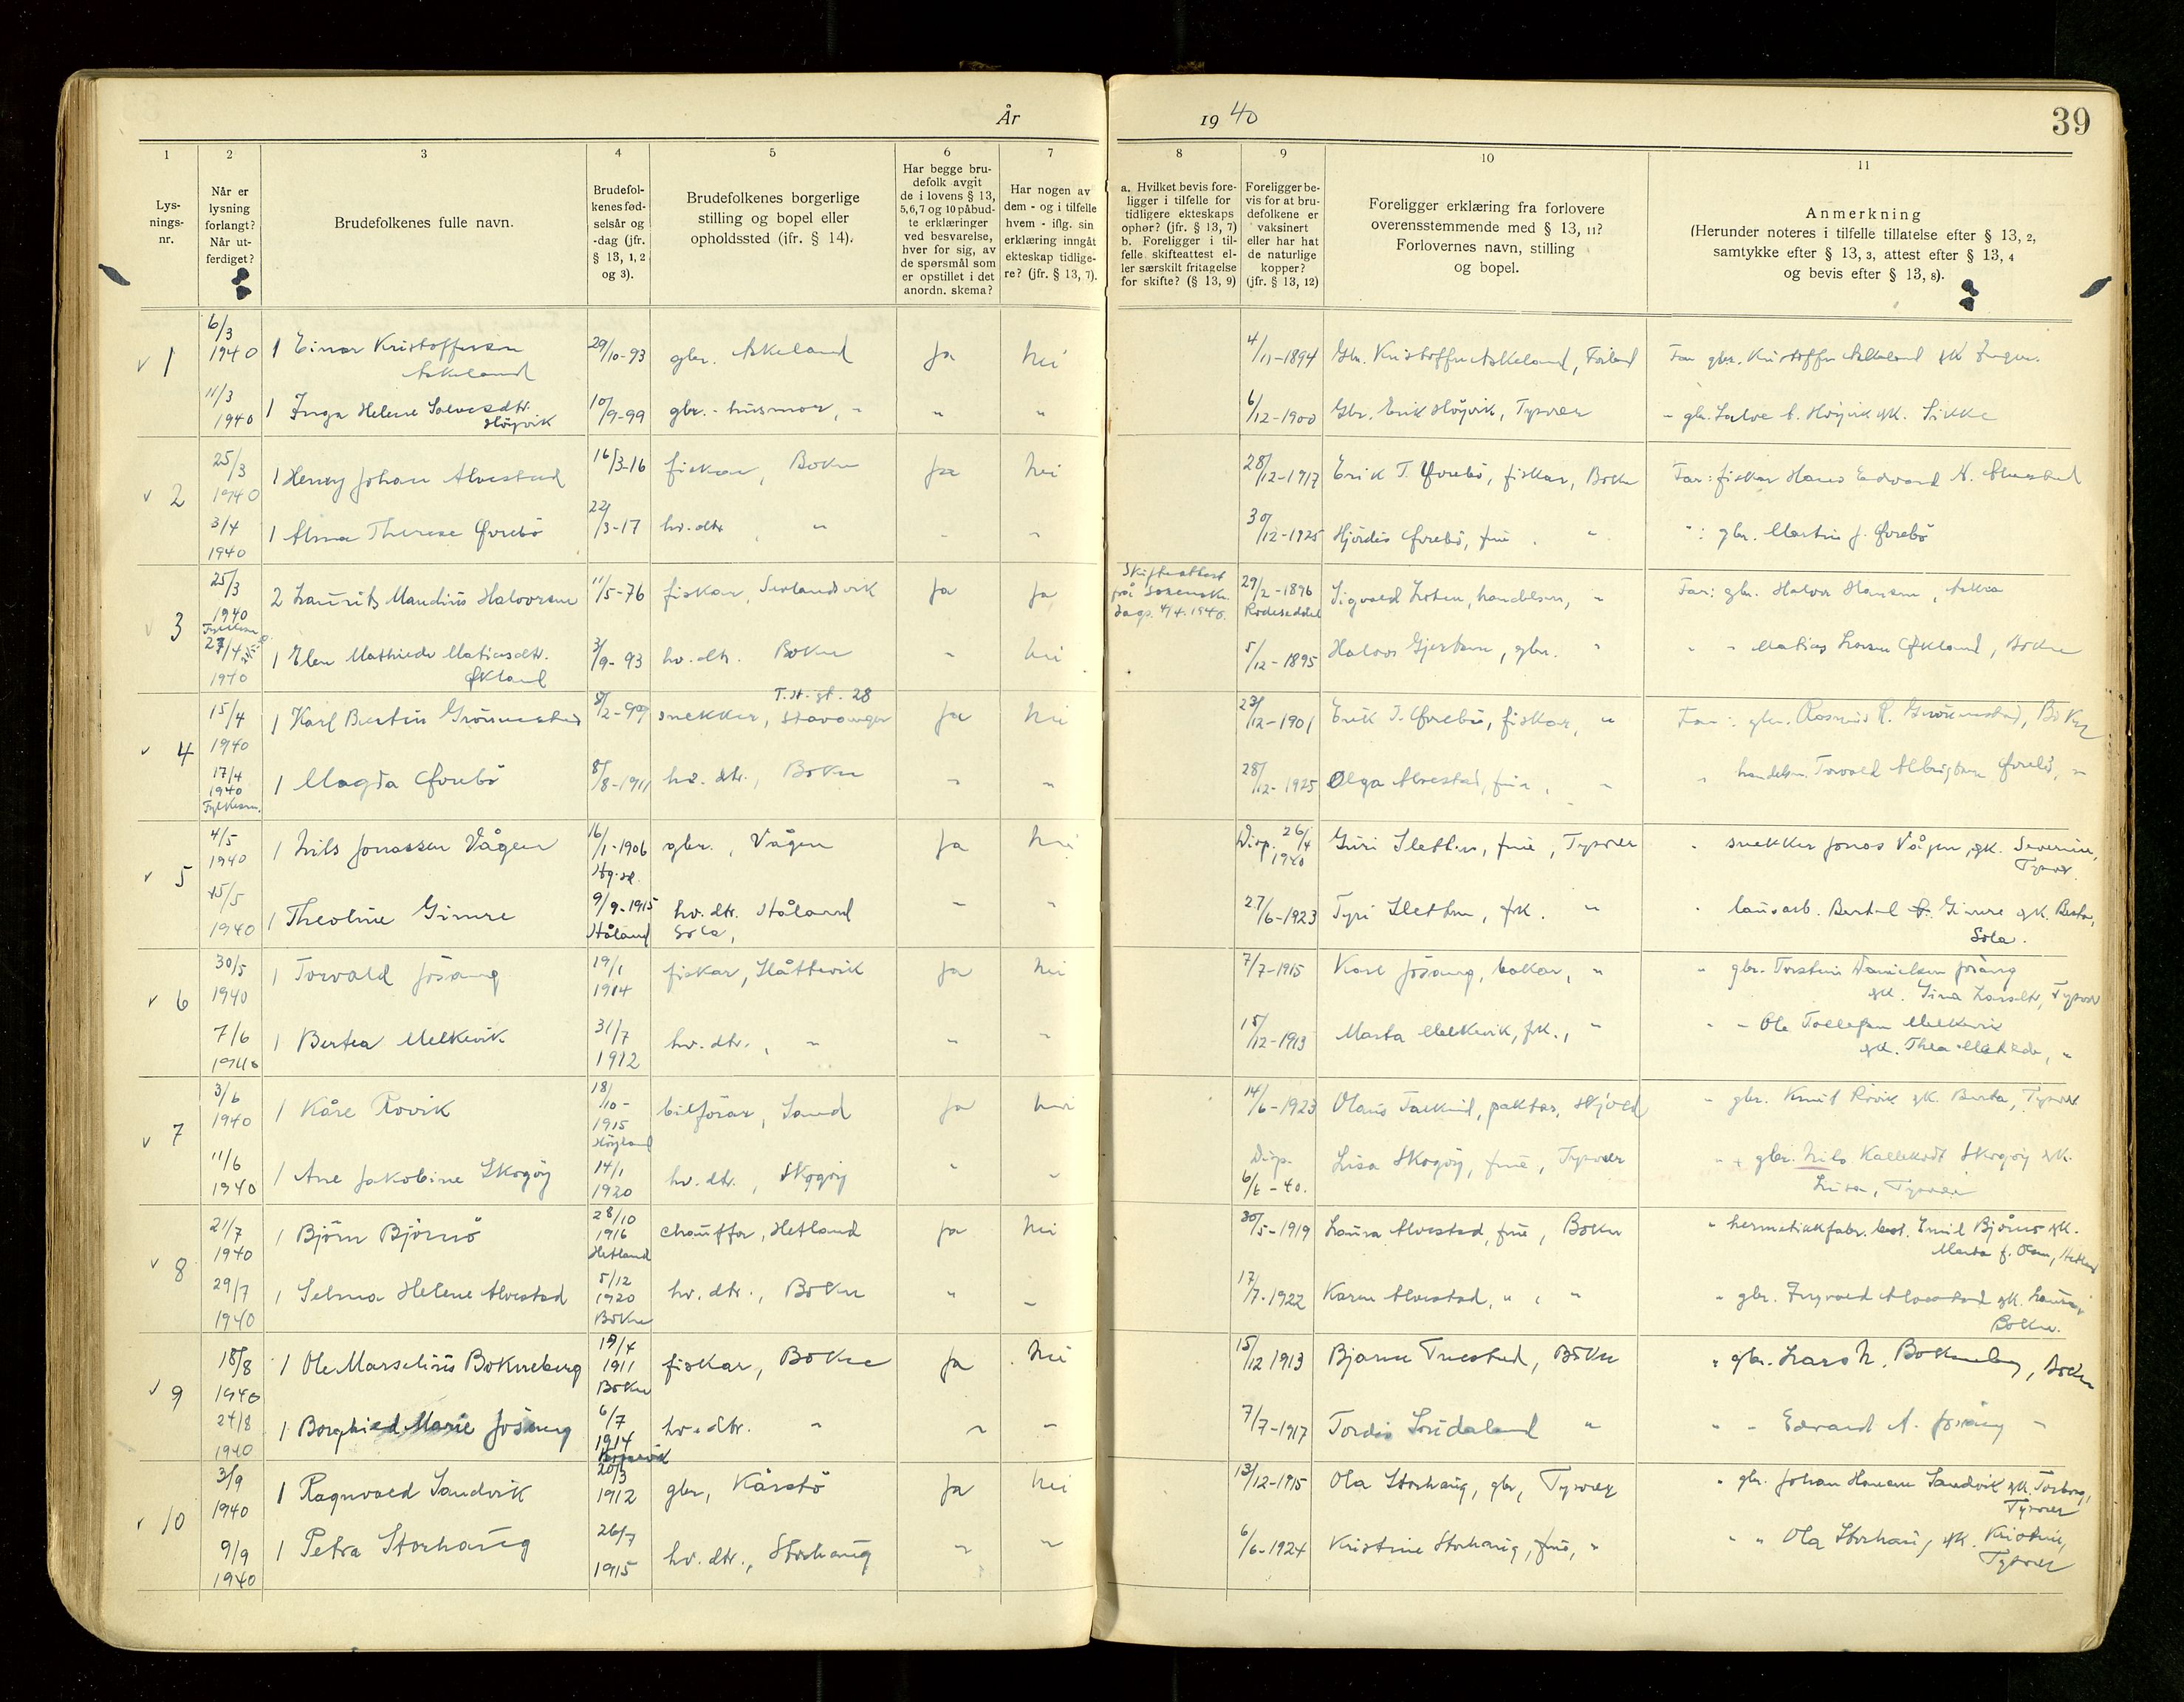 År
1940
39
1
2
3
4
5
6
7
8
9
10
11
Lys-
nings-
nr.
Når er
lysning
forlangt?
Når ut-
ferdiget?
Brudefolkenes fulle navn.
Brudefol-
kenes fød-
selsår og
-dag (jfr.
§ 13, 1, 2
og 3).
Brudefolkenes borgerlige
stilling og bopel eller
opholdssted (jfr. § 14).
Har begge bru-
defolk avgit
de i lovens § 13,
5, 6, 7 og 10 påbud-
te erklæringer
ved besvarelse,
hver for sig, av
de spørsmål som
er opstillet i det
anordn. skema?
Har nogen av
dem - og i tilfelle
hvem - iflg. sin
erklæring inngått
ekteskap tidlige-
re? (jfr. § 13, 7).
a. Hvilket bevis fore-
ligger i tilfelle for
tidligere ekteskaps
ophør? (jfr. § 13, 7)
b. Foreligger i til-
felle skifteattest el-
ler særskilt fritagelse
for skifte? (§ 13, 9)
Foreligger be-
vis for at bru-
defolkene er
vaksinert
eller har hat
de naturlige
kopper?
(jfr. § 13, 12)
Foreligger erklæring fra forlovere
overensstemmende med § 13, 11?
Forlovernes navn, stilling
og bopel.
Anmerkning
(Herunder noteres i tilfelle tillatelse efter § 13, 2,
samtykke efter § 13, 3, attest efter § 13, 4
og bevis efter § 13, 8).
v 1 6/3 1940 1 Einar Kristoffersen Askeland 29/10-93 gbr. Askeland Ja Nei 4/11-1894 Gbr. Kristoffer Askeland, Far gbr. Kristoffer Askeland gk
11/3 1940 1 Inga Helene Salvesdtr. Höyvik 10/9-99 gbr.-husmor, " " " 6/12-1900 Gbr. Erik Höyvik, Tysvær " gbr. Salve Höyvik gk. Sikke
v 2 25/3 1940 1 Henry Johan Alvestad 16/3-16 fiskar, Bokn Ja Nei 28/12-1917 Erik T. Øvrebö, fiskar, Bokn Far: fiskar Hans Edvard N. Alvestad
3/4 1940 1 Alma Therese Øvrebö 22/3-17 hv. dtr. " " " 30/12-1925 Hjördis Øvrebö, frü " ": gbr. Martin J. Øvrebö
v 3 25/3 1940 2 Laurits Mandius Halvorsen 11/5-76 fiskar, Ja Ja Skifteattest frå Sorensk. dags. 4/4.1940. 29/2-1896 Sigvald Loten, handelsm, " Far: gbr. Halvor Hansen, Askra
27/4 1940 1 Elen Mathilde Matiasdtr. Økland 3/9-93 hv. dtr. Bokn " Nei 5/12-1895 Halvor Gjertsen, gbr. " " " Matias Larsen Økland, Bokn
v 4 15/4 1940 1 Karl Bertin Grönnestad 8/2-909 snekker, Stavanger T. H. gt. 28 Ja Nei 23/12-1901 Erik T. Øvrebö, fiskar, " Far: gbr. Rasmus R. Grönnestad, Bokn
17/4 1940 Fylkesm. 1 Magda Øvrebö 8/8-1911 hv. dtr., Bokn " " 28/12-1925 Olga Alvestad, frü, " " handelsm. Torvald Albrigtsen Øvrebö, "
v 5 4/5 1940 1 Nils Jonassen Vågen 16/1-1906 gbr., Vågen Ja Nei Disp. 26/4 1940 Guri Sletten, frü, Tysvær " snekker Jonas Vågen, gk. Severine, Tysvær.
15/5 1940 1 Theoline Gimre 9/9-1915 Håland hv. dtr. Håland Sola, " " 27/6-1923 Tyri Sletten, frk. " " lausarb. Bertel Gimre gk. Berta, Sola.
v 6 30/5 1940 1 Torvald Jösang 19/1 1914 fiskar, Slåttevik Ja Nei 7/7-1915 Karl Jösang, bakar, " " gbr. Torstein Danielsen Jösang gk. Sina Larsdtr, Tysvær
7/6 1940 1 Bertea Melkevik 31/7 1912 hv. dtr., " " " 15/12-1913 Marta Melkevik, frk., " " " Ole Tollefsen Melkevik gk. Thea "
v 7 3/6 1940 1 Kåre Rovik 18/10-1915 bilförar, Sand Ja Nei 14/6-1923 Olaus paktar, Skjold " gbr. Knut Rövik gk. Berta, Tysvær
11/6 1940 1 Ane Jakobine Skogöy 14/1 1920 hv. dtr., Skogöy " " Disp. 6/6-40. Lisa Skogöy, frü, Tysvær " gbr. Nils Skogöy gk. Lisa, Tysvær
v 8 21/7 1940 1 Björn Björnö 28/10 1916 Hetland chauffør, Hetland Ja Nei 30/5-1919 Laura Alvestad, frü, Bokn " hermetikkfabr. best. Emil Björnö gk. Marta f. Olsen, Hetland
29/7 1940 1 Selma Helene Alvestad 5/12 1920 Bokn hv. dtr., Bokn " " 17/7-1922 Karen Alvestad, " , " " gbr. Ingvald Alvestad gk. Laura, Bokn.
v 9 18/8 1940 1 Ole Marselius Bokneberg 19/4 1911 Bokn fiskar, Bokn Ja Nei 15/12 1913 Bjarne Bokn " gbr. Lars N. Bokneberg, Bokn
24/8 1940 1 Borghild Marie Jösang 6/7 1914 hv. dtr. " " " 7/7-1917 Tordis " " " Edvard A. Jösang "
v 10 3/9 1940 1 Ragnvald Sandvik 20/3 1912 gbr, Kårstö Ja Nei 13/12-1915 Ola Storhaug, gbr, Tysvær " gbr. Johan Hansen Sandvik gk. Torborg, Tysvær
9/9 1940 1 Petra Storhaug 26/7 1915 hv. dtr., Storhaug " " 6/6-1924 Kristine Storhaug, frü, " " " Ola Storhaug gk. Kristine, Tysvær